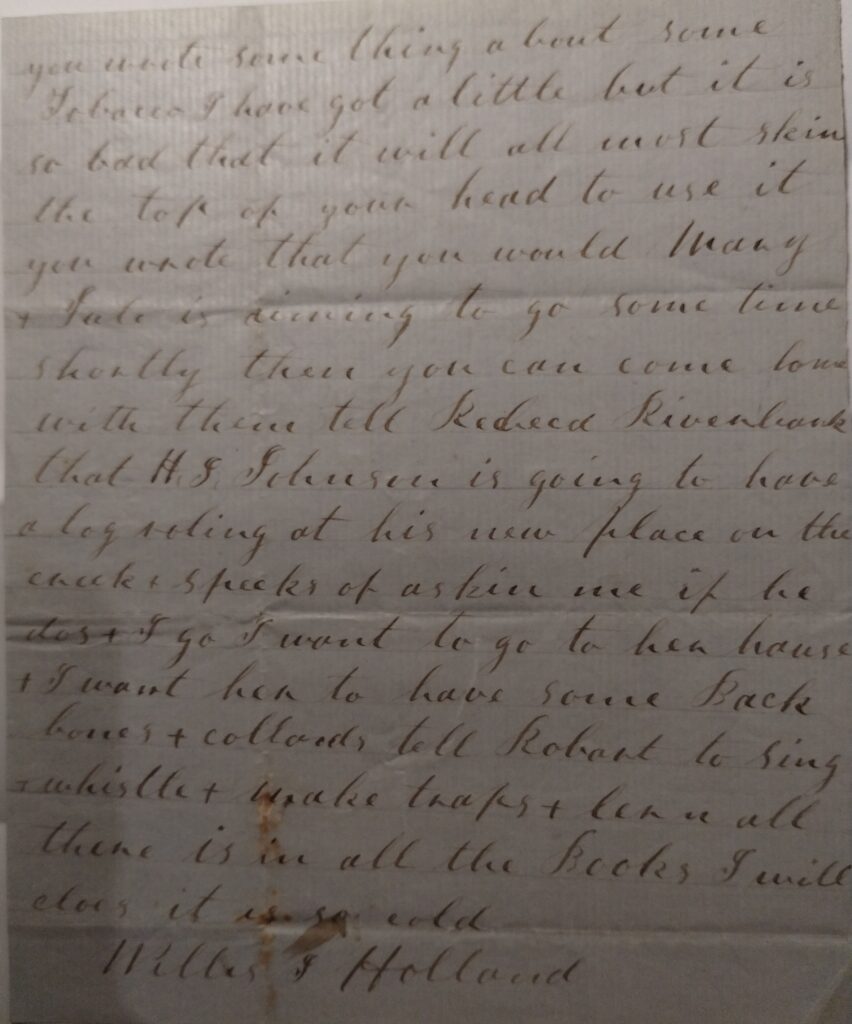 you wrote some thing about some
Tobacco I have got a little but it is
so bad that it will all most skin
the top of your head to use it
you wrote that you would Mary
+ is aiming to go some time
shortly then you can come home
with them tell Rivenbark
that H. J. Johnson is going to have
a log roling at his new place on the
creek + speeks of askin me if he
dos + I go I want to go to her house
+ I want her to have some Back
bones + collards tell Robart to sing
+ whistle + make traps + lern all
there is in all the Books I will
clos it is so cold
Willis J Holland